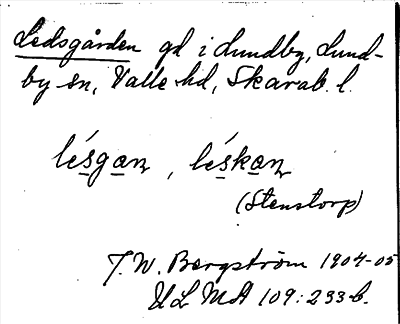 Ledsgården gd i Lundby, Lund-
by sn, Valle hd, Skarab. l.
lésgan, léskan
(Stenstorp)
T. W. Bergström 1904-05
ULMA 109:233 b.